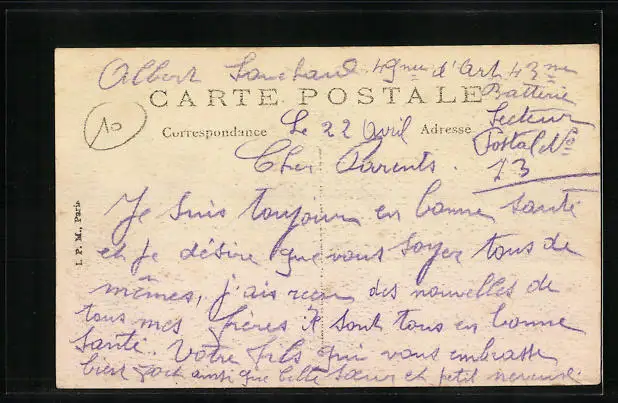 Albert 49me d'Art. 43me
Batterie
CARTE POSTALE
Secteur
Correspondance Le 22 Avril Adresse
Postal No
73
10
Cher Parents.
Je suis toujour en bonne santé
et je désire que vous soyez tous de
mêmes, j'ais reçu des nouvelles de
tous mes frères. Il sont tous en bonne
santé. Votre fils qui vous embrasse
bien fort ainsi que belle sœur et petit neveu
I. P. M., Paris